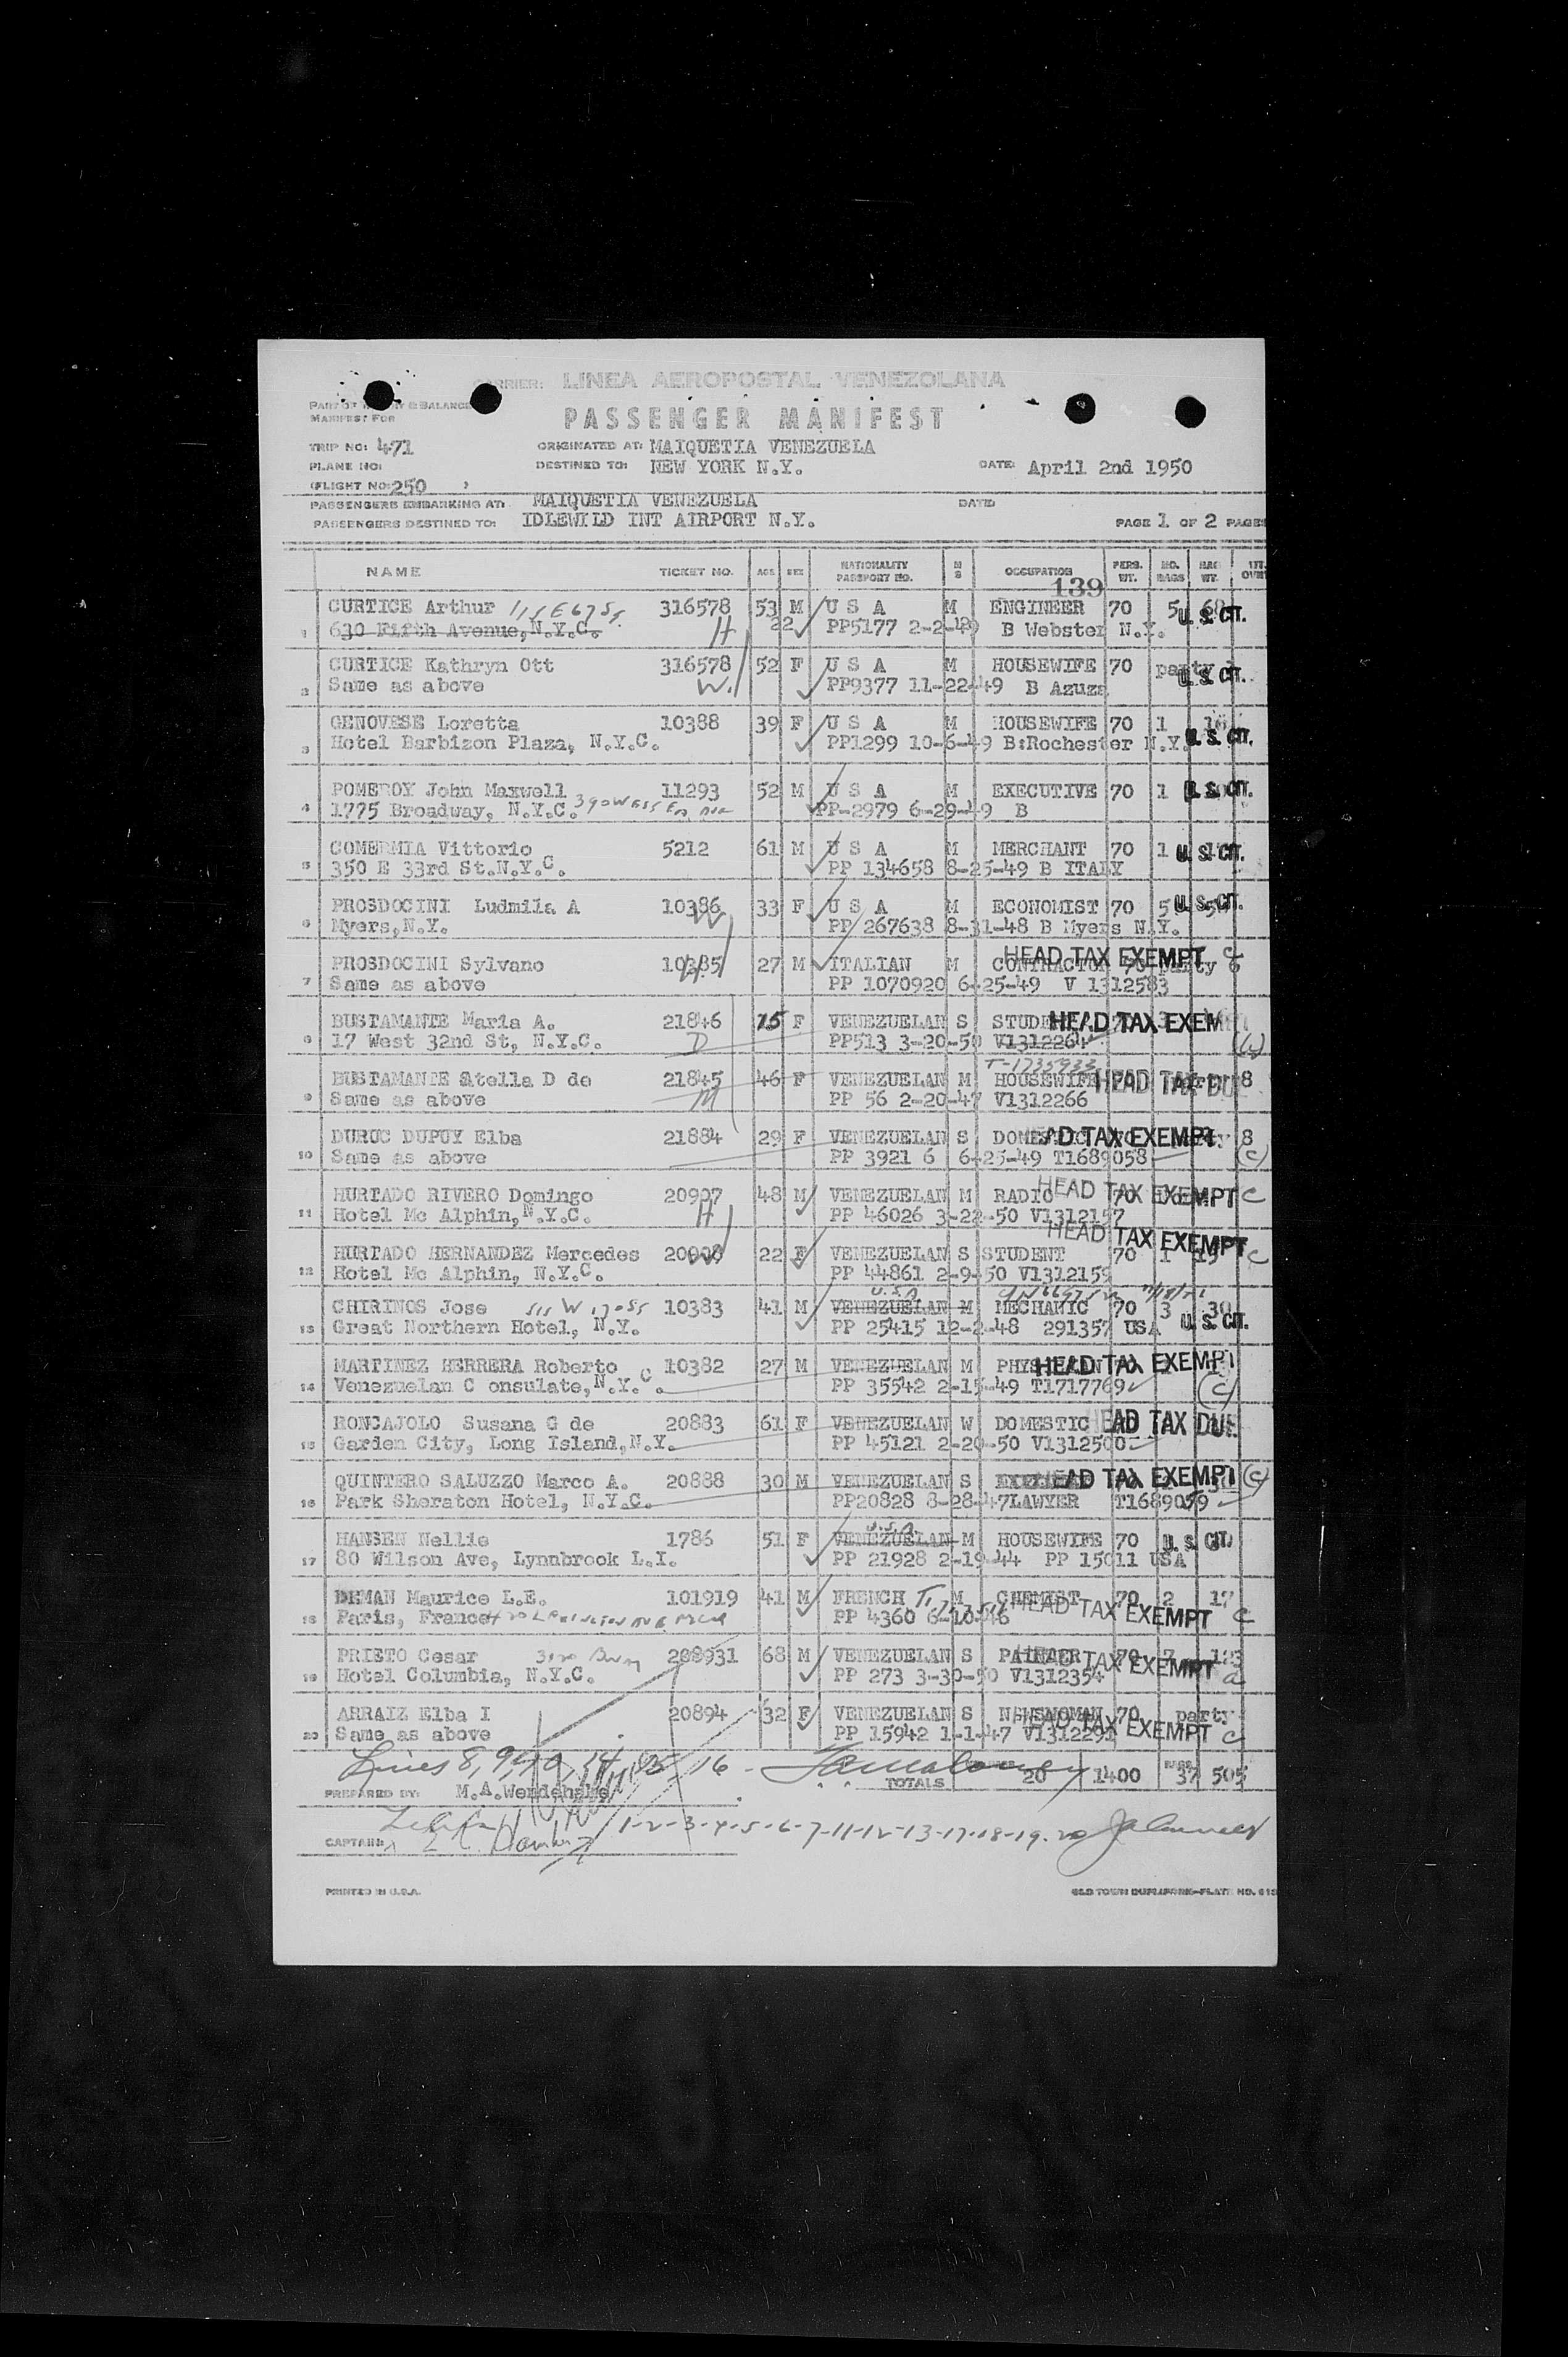 CARRIER: LINEA AEROPOSTAL VENEZOLANA
MANIFEST FOR
PASSENGER MANIFEST
TRIP NO: 471 ORIGINATED AT: MAIQUETIA VENEZUELA
PLANE NO: DESTINED TO: NEW YORK N.Y. DATE: April 2nd 1950
(FLIGHT NO: 250 )
PASSENGERS EMBARKING AT: MAIQUETIA VENEZUELA DATE:
PASSENGERS DESTINED TO: IDLEWILD INT AIRPORT N.Y. PAGE 1 OF 2 PAGES
NAME TICKET NO. AGE SEX NATIONALITY PASSPORT NO. M S OCCUPATION PERS. WT. NO. BAGS BAG WT.
139
CURTICE Arthur 115 E 67 St. 316578 53 M U S A M ENGINEER 70 5 U.S. CIT.
1 630 Fifth Avenue, N.Y.C. H 22 PP5177 2-2-49 B Webster N.Y.
CURTICE Kathryn Ott 316578 52 F U S A M HOUSEWIFE 70 party U.S. CIT.
2 Same as above W. PP9377 11-22-49 B Azuza
GENOVESE Loretta 10388 39 F U S A M HOUSEWIFE 70 1 U.S. CIT.
3 Hotel Barbizon Plaza, N.Y.C. PP1299 10-6-49 B:Rochester N.Y.
POMEROY John Maxwell 11293 52 M U S A M EXECUTIVE 70 1 U.S. CIT.
4 1775 Broadway, N.Y.C. 390 West En Ave PP-2979 6-29-49 B
COMERMIA Vittorio 5212 61 M U S A M MERCHANT 70 1 U.S. CIT.
5 350 E 33rd St.N.Y.C. PP 134658 8-25-49 B ITALY
PROSDOCINI Ludmila A 10386 33 F U S A M ECONOMIST 70 5 U.S. CIT.
6 Myers,N.Y. W PP 267638 8-31-48 B Myers N.Y.
PROSDOCINI Sylvano 10385 27 M ITALIAN M CONTRACTOR 70 party 6 HEAD TAX EXEMPT
7 Same as above H PP 1070920 6-25-49 V 1312583
BUSTAMANTE Maria A. 21846 15 F VENEZUELAN S STUDENT HEAD TAX EXEM
8 17 West 32nd St, N.Y.C. D PP513 3-20-50 V1312264
T-1735933
BUSTAMANTE Stella D de 21845 46 F VENEZUELAN M HOUSEWIFE 70 party 8 HEAD TAX DUE
9 Same as above M PP 56 2-20-47 V1312266
DURUC DUPUY Elba 21884 29 F VENEZUELAN S DOMESTIC 8 HEAD TAX EXEMPT
10 Same as above PP 3921 6 6-25-49 T1689058 (C)
HURTADO RIVERO Domingo 20907 48 M VENEZUELAN M RADIO 70 HEAD TAX EXEMPT C
11 Hotel Mc Alphin, N.Y.C. H PP 46026 3-22-50 V1312157
HEAD TAX EXEMPT
HURTADO HERNANDEZ Mercedes 20908 22 F VENEZUELAN S STUDENT 70 1 19 C
12 Hotel Mc Alphin, N.Y.C. PP 44861 2-9-50 V1312159
U.S.A
CHIRINOS Jose 511 W 170 St 10383 41 M VENEZUELAN M MECHANIC 70 3 30
13 Great Northern Hotel, N.Y. PP 25415 12-2-48 291357 USA U.S. CIT.
MARTINEZ HERRERA Roberto 10382 27 M VENEZUELAN M PHYSICIAN HEAD TAX EXEMPT
14 Venezuelan C onsulate, N.Y.C. PP 35542 2-15-49 T1717769 (C)
RONCAJOLO Susana G de 20883 61 F VENEZUELAN W DOMESTIC HEAD TAX DUE
15 Garden City, Long Island,N.Y. PP 45121 2-20-50 V1312500
QUINTERO SALUZZO Marco A. 20888 30 M VENEZUELAN S HEAD TAX EXEMPT (C)
16 Park Sheraton Hotel, N.Y.C. PP20828 8-28-47 LAWYER T1689059
U.S.A
HANSEN Nellie 1786 51 F VENEZUELAN M HOUSEWIFE 70 U.S. CIT.
17 80 Wilson Ave, Lynnbrook L.I. PP 21928 2-19-44 PP 15011 USA
DEMAN Maurice L.E. 101919 41 M FRENCH M CHEMIST 70 2 17
18 Paris, France PP 4360 6-10-46 HEAD TAX EXEMPT C
PRIETO Cesar 208931 68 M VENEZUELAN S PAINTER 70 7 123
19 Hotel Columbia, N.Y.C. PP 273 3-30-50 V1312354 HEAD TAX EXEMPT C
ARRAIZ Elba I 20894 32 F VENEZUELAN S NEWSWOMAN 70 party
20 Same as above PP 15942 1-1-47 V1312291 HEAD TAX EXEMPT C
Lines 8, 9, 10, 14, 15, 16 - TOTALS 20 1400 37 505
PREPARED BY: M.A.Wendehake
1-2-3-4-5-6-7-11-12-13-17-18-19-20
CAPTAIN:
PRINTED IN U.S.A. OLD TOWN DUPLIFORM—PLATE NO. 613